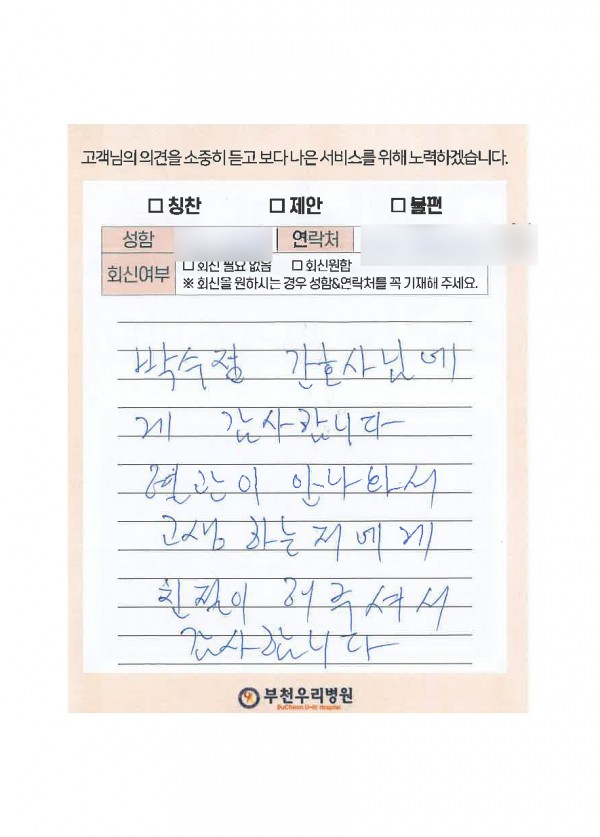 고객님의 의견을 소중히 듣고 보다 나은 서비스를 위해 노력하겠습니다.
□ 칭찬 □ 제안 □ 불편
성함 연락처
회신여부 □ 회신 필요 없음 □ 회신원함
※ 회신을 원하시는 경우 성함&연락처를 꼭 기재해 주세요.
박수점 간호사님에
게 감사합니다
혈관이 안나와서
고생 하는 저에게
친절이 해주셔서
감사합니다
부천우리병원
BuCheon U-Ri Hospital